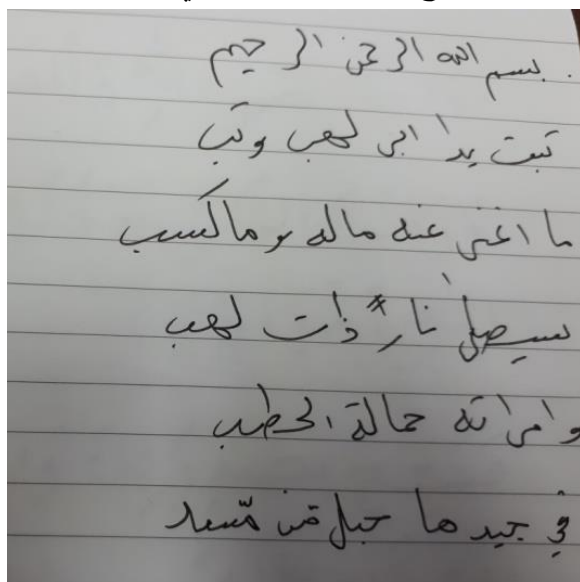 بسم الله الرحمن الرحيم
تبت يدا ابى لهب وتب
ما اغنى عنه ماله وما كسب
سيصلى ناراً ذات لهب
وامراته حمالة الحطب
في جيدها حبل من مّسد